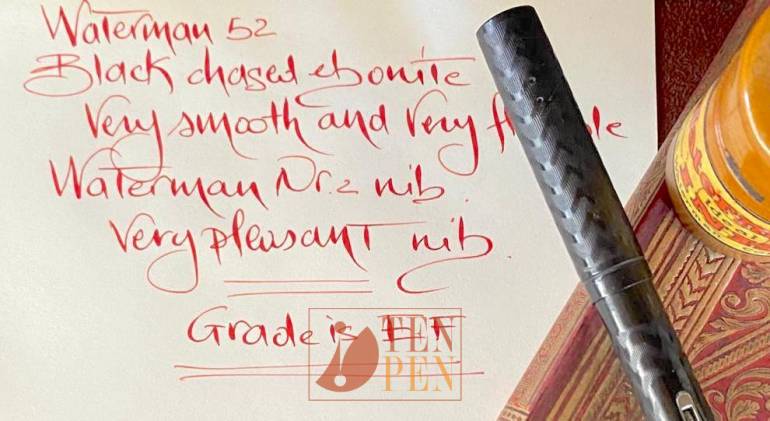 Waterman 52
Black chased ebonite
Very smooth and very
Waterman Nr. 2 nib.
Very pleasant nib.
Grade is
TEN
PEN